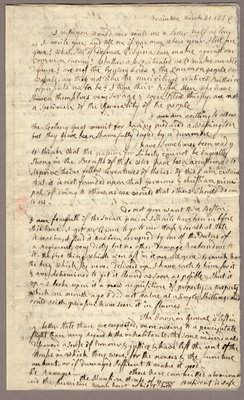 Braintree March 31 1776
I wish you would ever write me a Letter half as long
as I write you; and tell me if you may where your Fleet are
gone? What sort of Defence Virginia can make against our
common Enemy? Whether it is so situated as to make an able
Defence? Are not the Gentery Lords and the common people
vassals, are they not like the uncivilized Natives Brittain
represents us to be? I hope their Riffel Men who have
shewen themselves very savage and even Blood thirsty; are not
a specimen of the Generality of the people.
I am willing to allow
the Colony great merrit for having produced a Washington
but they have been shamefully duped by a Dunmore.
I have sometimes been ready
to think that the passion for Liberty cannot be Eaquelly
Strong in the Breasts of those who have been accustomed to
deprive their fellow Creatures of theirs. Of this I am certain
that it is not founded upon that generous and christian princi-
pal of doing to others as we would that others should do
unto us.
Do not you want to see Boston;
I am fearfull of the small pox, or I should have been in before
this time. I got Mr Crane to go to our House and see what state
it was in. I find it has been occupied by one of the Doctors of
a Regiment, very dirty, but no other Damage has been done to
it. The few things which were left in it are all gone.
the key which he never deliverd up, I have wrote to him for it
and am determined to get it cleand as soon as possible and shut it
up. I look upon it a new acquisition of property, a property
which one month ago I did not value at a single Shilling, and
could with pleasure have seen it in flames.
The Town in General is left in a
better state than we expected, more oweing to a percipitate
flight than any Regard to the inhabitants, tho some individuals
discoverd a sense of honour and justice and have left the rent of the
Houses in which they were, for the owners and the furniture
unhurt, or if damaged sufficent to make it good.
Others have committed abominable
Ravages. The Mansion House of your President is safe
and the furniture unhurt